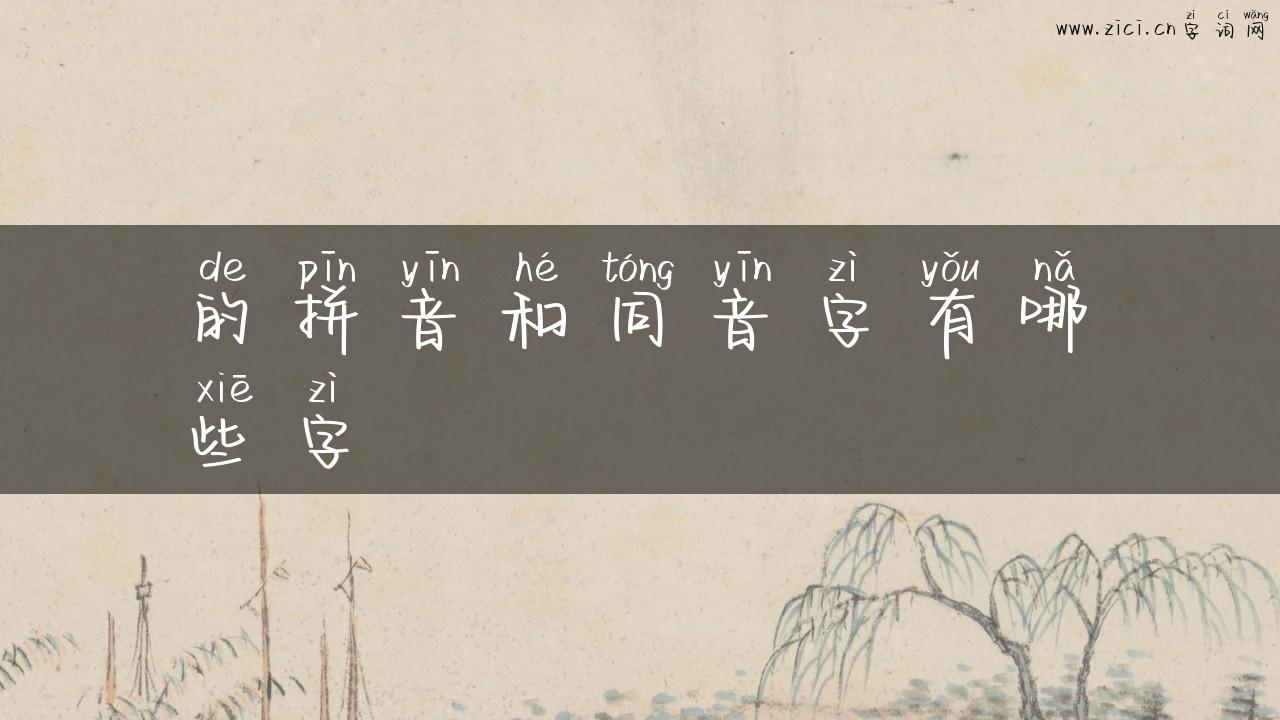 zì cí wǎng
www.zici.cn字词网
de pīn yīn hé tóng yīn zì yǒu nǎ
的拼音和同音字有哪
xiē zì
些字